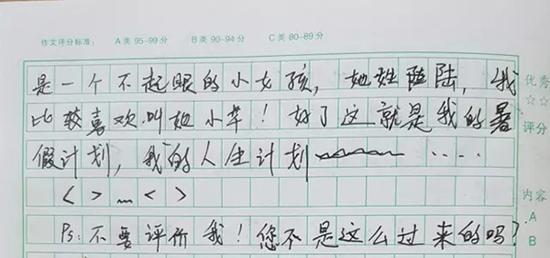 作文评分标准: A类95-99分 B类90-94分 C类80-89分
是一个不起眼的小女孩，她姓陆，我
比较喜欢叫她小草！好了这就是我的暑
假计划，我的人生计划～～～ ····
< > … < >
Ps:不要评价我！您不是这么过来的吗？
优秀
☆☆
评分
内容
A
B